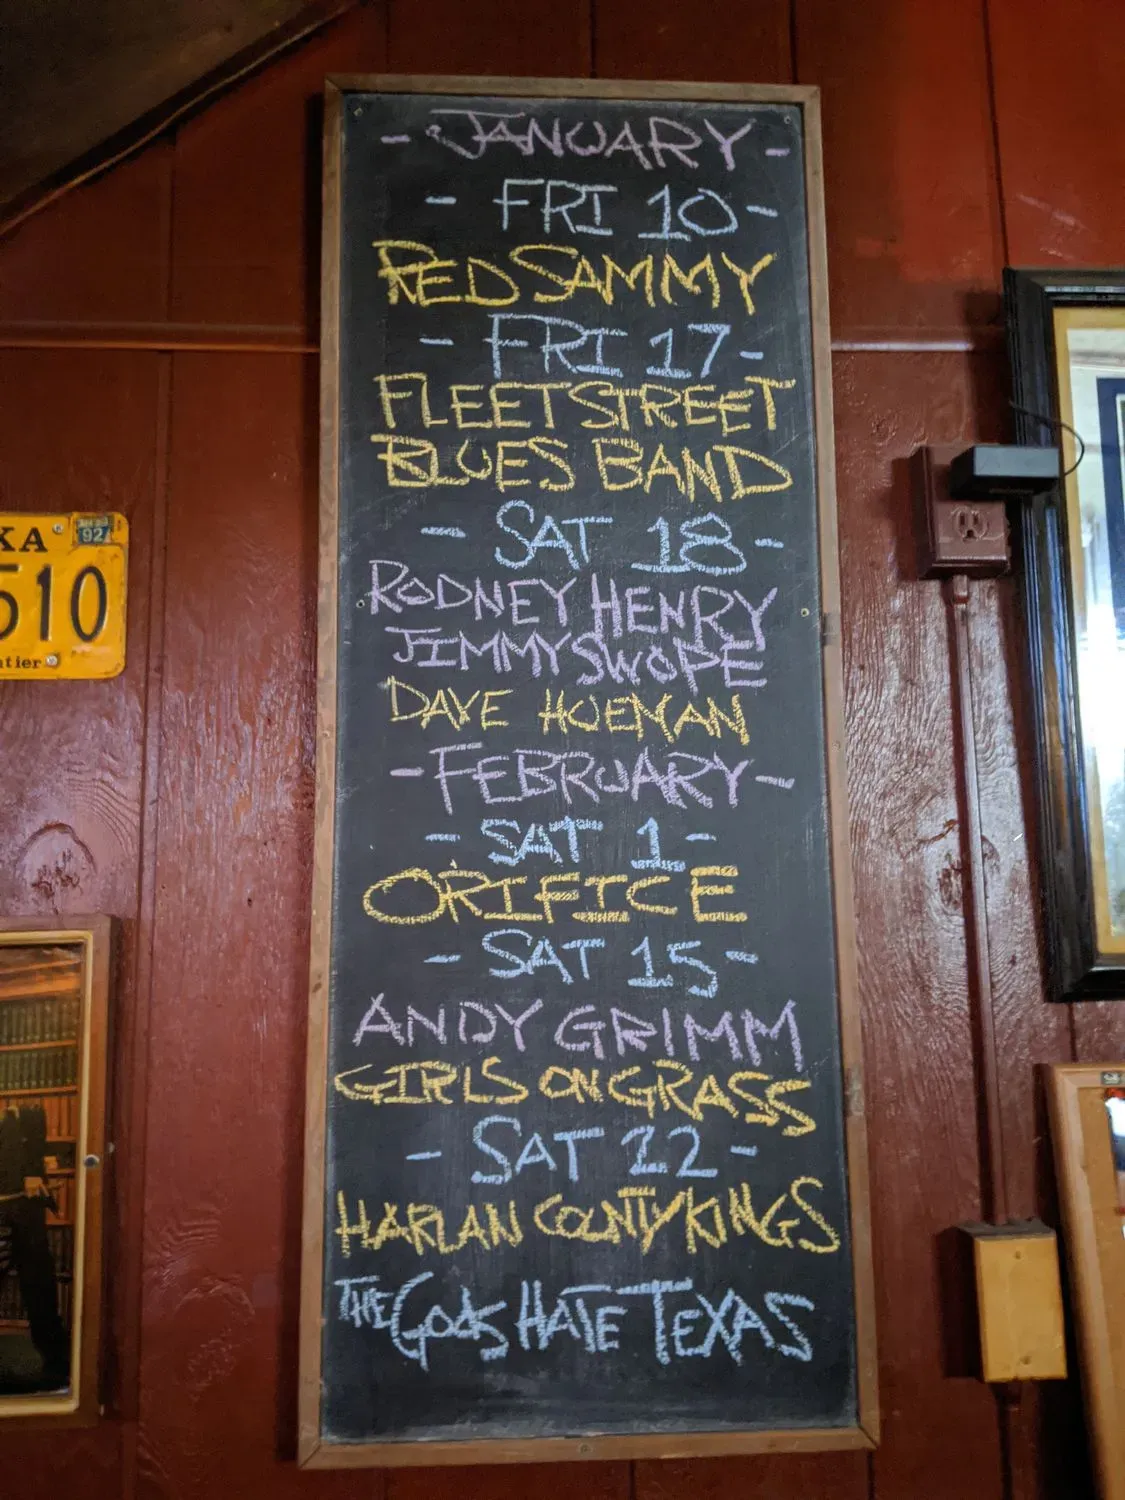 - JANUARY -
- FRI 10 -
RED SAMMY
- FRI 17 -
FLEET STREET
BLUES BAND
- SAT 18 -
RODNEY HENRY
JIMMY SWOPE
DAVE HUEMAN
- FEBRUARY -
- SAT 1 -
ORIFICE
- SAT 15 -
ANDY GRIMM
GIRLS ON GRASS
- SAT 22 -
HARLAN COUNTY KINGS
THE GODS HATE TEXAS
KA
92
510
ntier